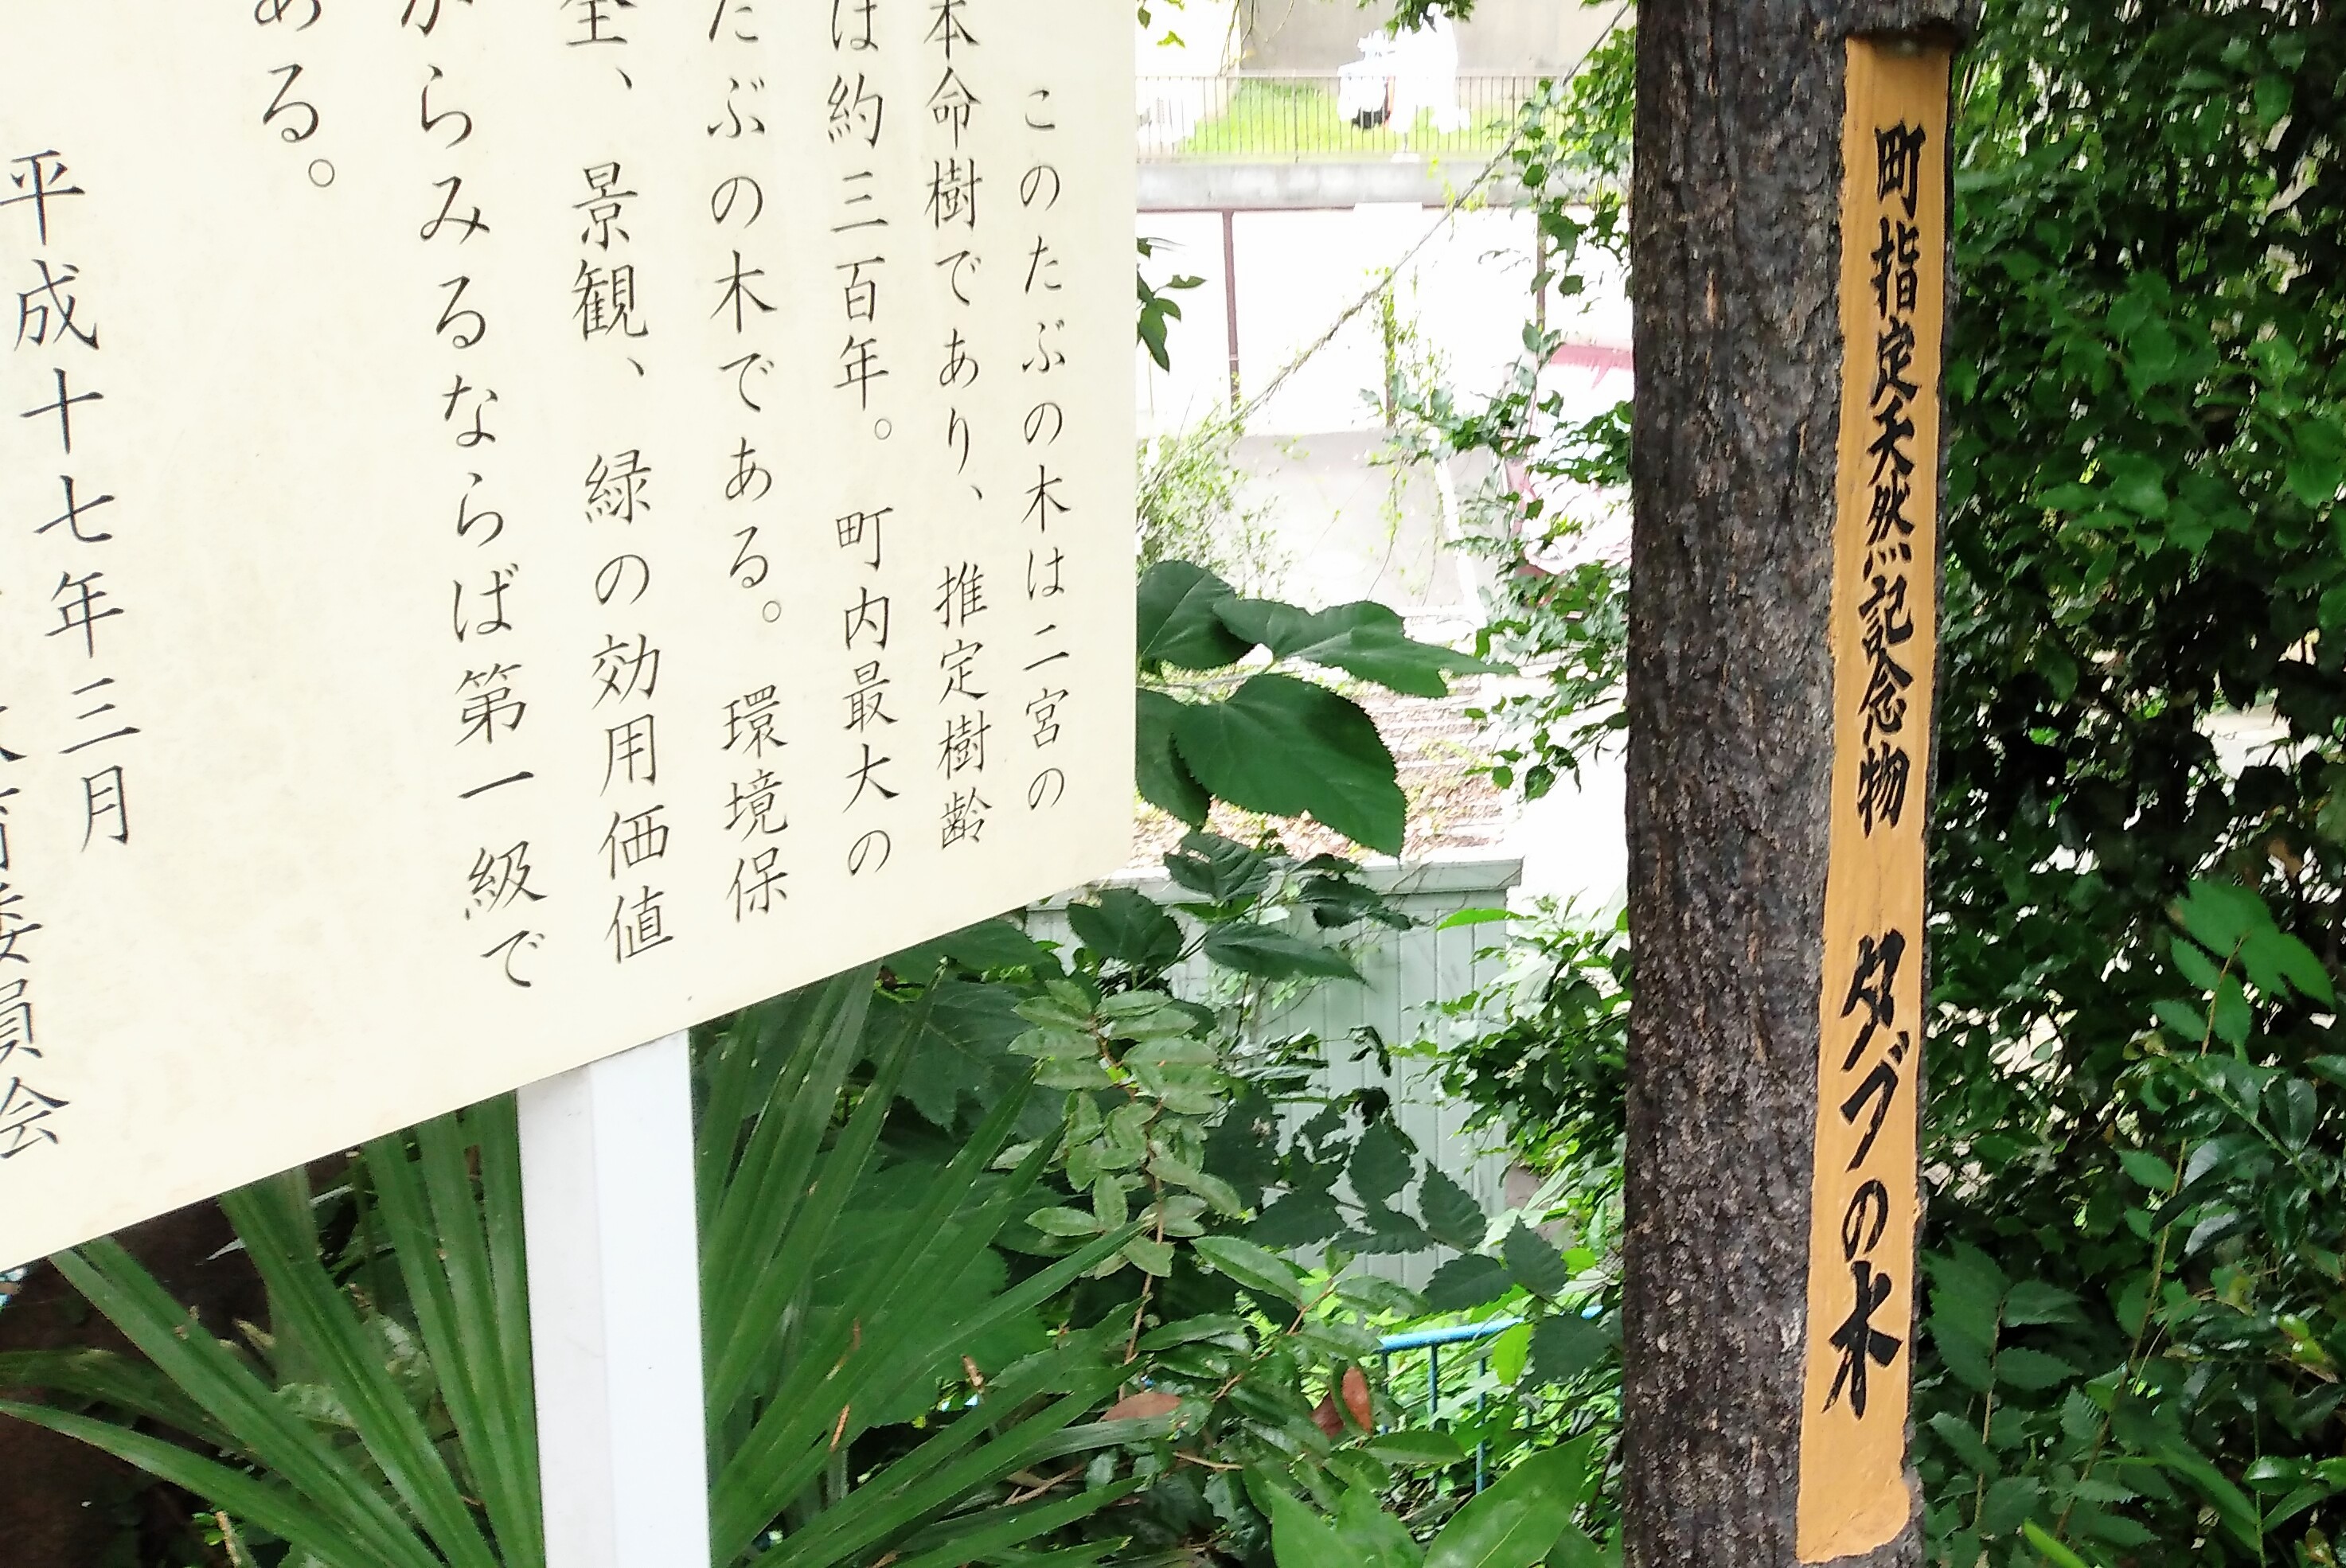 町指定天然記念物 タブの木
このたぶの木は二宮の
本命樹であり、推定樹齢
は約三百年。町内最大の
たぶの木である。環境保
全、景観、緑の効用価値
からみるならば第一級で
ある。
平成十七年三月
育委員会